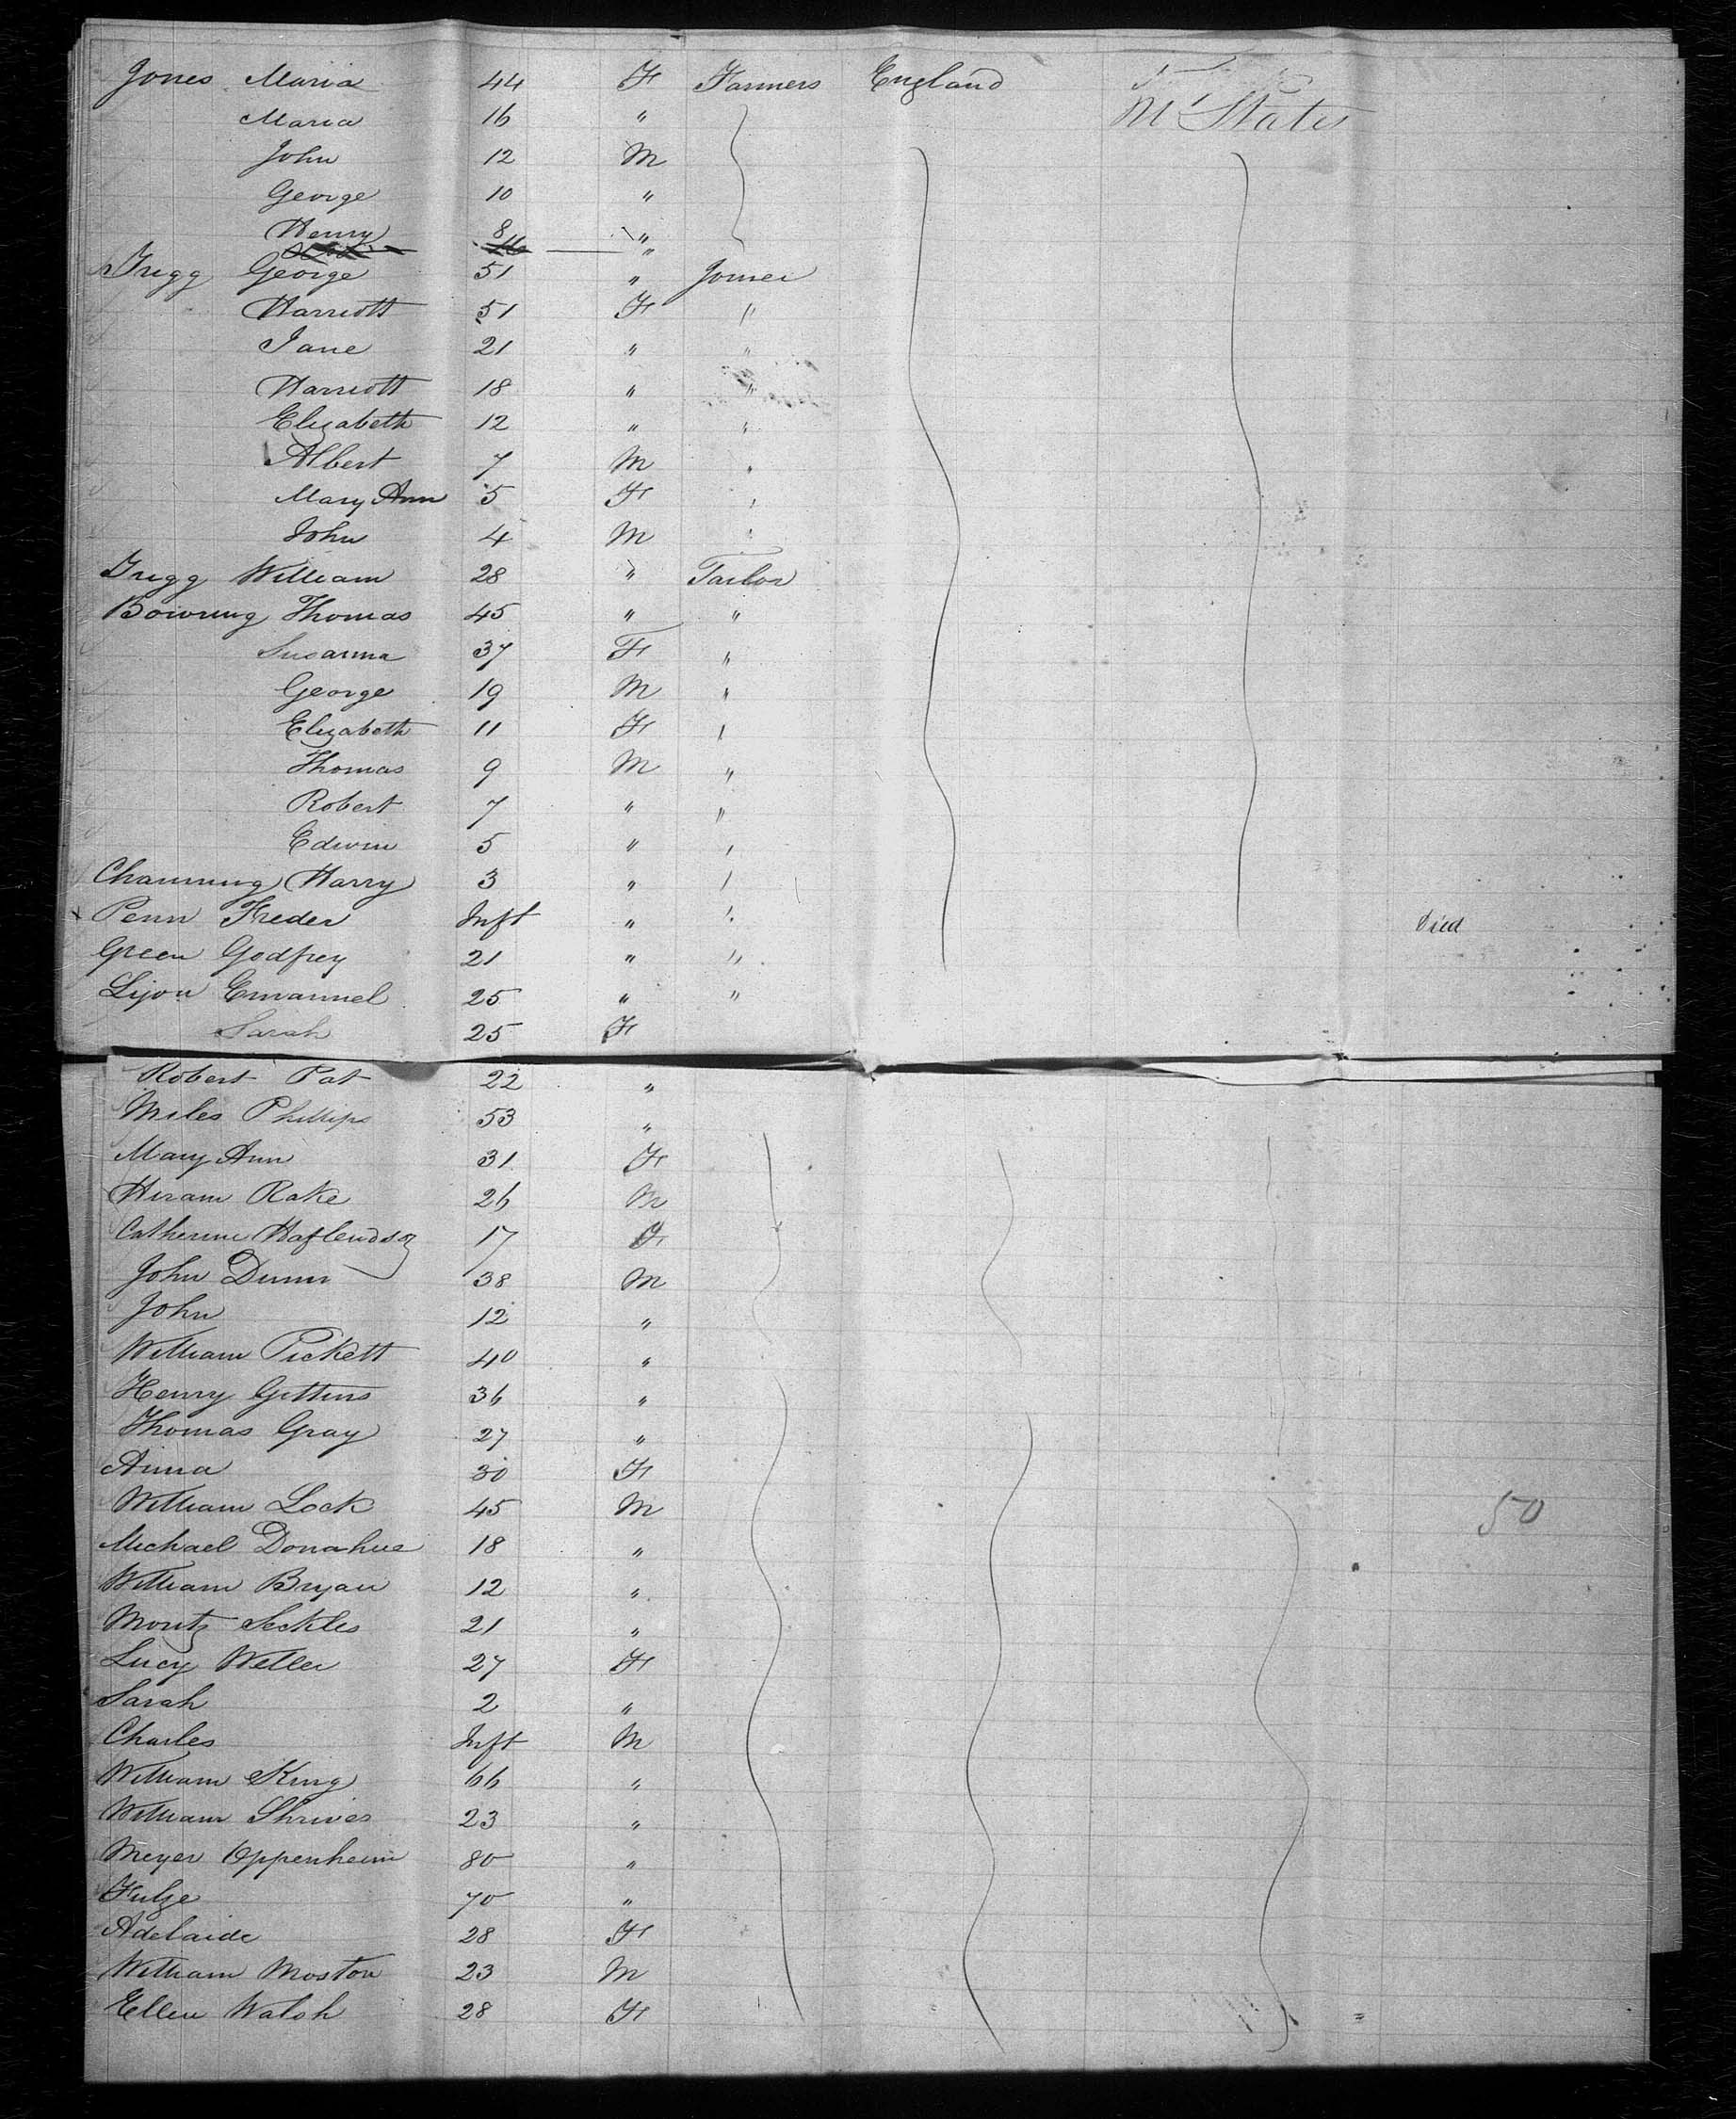 Jones Maria 44 F Farmers England
Maria 16 " Ud States
John 12 M
George 10 "
Henry 8 "
Trigg George 51 " Joiner
Harriott 51 F "
Jane 21 " "
Harriott 18 " "
Elizabeth 12 " "
Albert 7 M "
Mary Ann 5 F "
John 4 M "
Trigg William 28 " Tailor
Bowring Thomas 45 " "
Susanna 37 F "
George 19 M "
Elizabeth 11 F "
Thomas 9 M "
Robert 7 " "
Edwin 5 " "
Channing Harry 3 " "
Penn Freder Inft " " Died
Green Godfrey 21 " "
Emannel 25 " "
Sarah 25 F
Robert Pat 22 "
Miles Phillips 53 "
Mary Ann 31 F
Hiram Rake 26 M
Catherine 17 F
John Dunn 38 M
John 12 "
William Pickett 40 "
Henry Gittins 36 "
Thomas Gray 27 "
Anna 30 F
William Lock 45 M 50
Michael Donahue 18 "
William Bryan 12 "
Moritz Seckles 21 "
Lucy Weller 27 F
Sarah 2 "
Charles Inft M
William King 66 "
William Shrives 23 "
Meyer Oppenheim 80 "
70 "
Adelaide 28 F
William Moston 23 M
Ellen Walsh 28 F